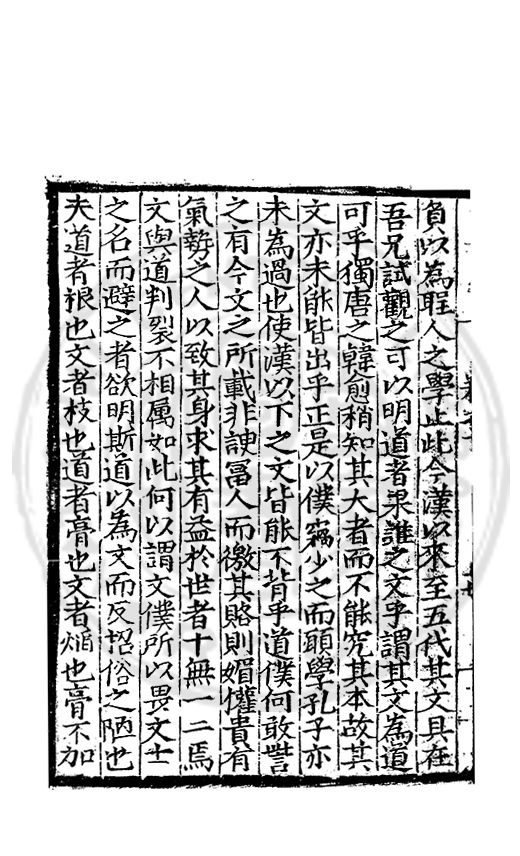 負以為聖人之學止此今漢以來至五代其文具在
吾兄試觀之可以明道者果誰之文乎謂其文為道
可乎獨唐之韓愈稍知其大者而不能究其本故其
文亦未能皆出乎正是以僕竊少之而願學孔子亦
未為過也使漢以下之文皆能不背乎道僕何敢訾
之有今文之所載非諛冨人而徼其賂則媚權貴有
氣勢之人以致其身求其有益於世者十無一二焉
文與道判裂不相属如此何以謂文僕所以畏文士
之名而避之者欲明斯道以為文而反招俗之陋也
夫道者根也文者枝也道者膏也文者焰也膏不加